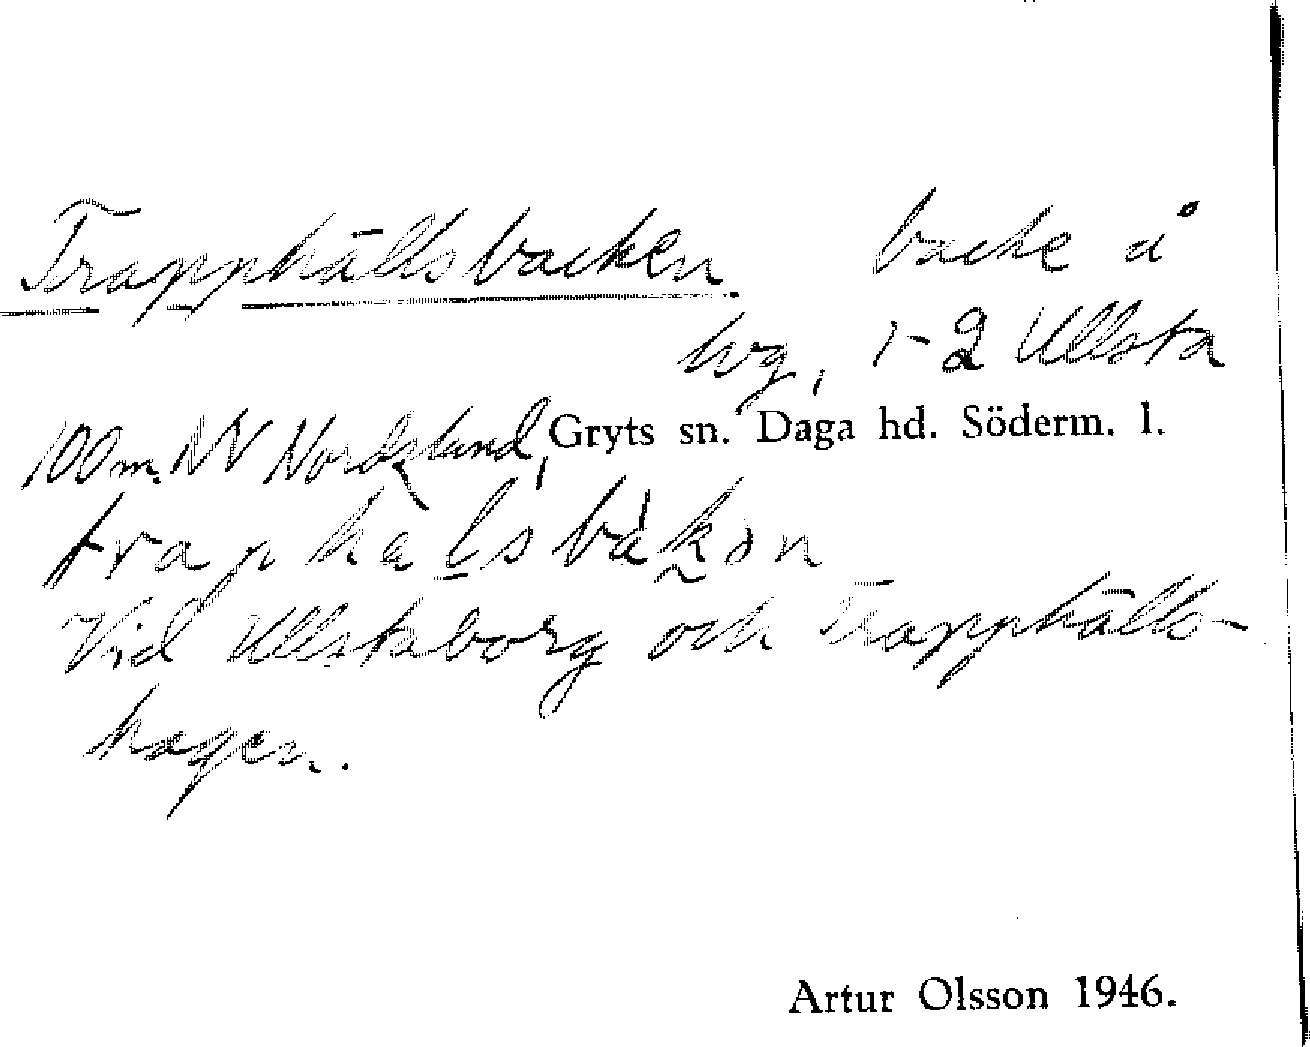 Trapphällsbacken backe å
lvg, 1-2 Ullsta
100 m. NV Nordslund, Gryts sn. Daga hd. Söderm. l.
traphalsbakən
Vid Ullstaborg och Trapphälls-
hagen.
Artur Olsson 1946.